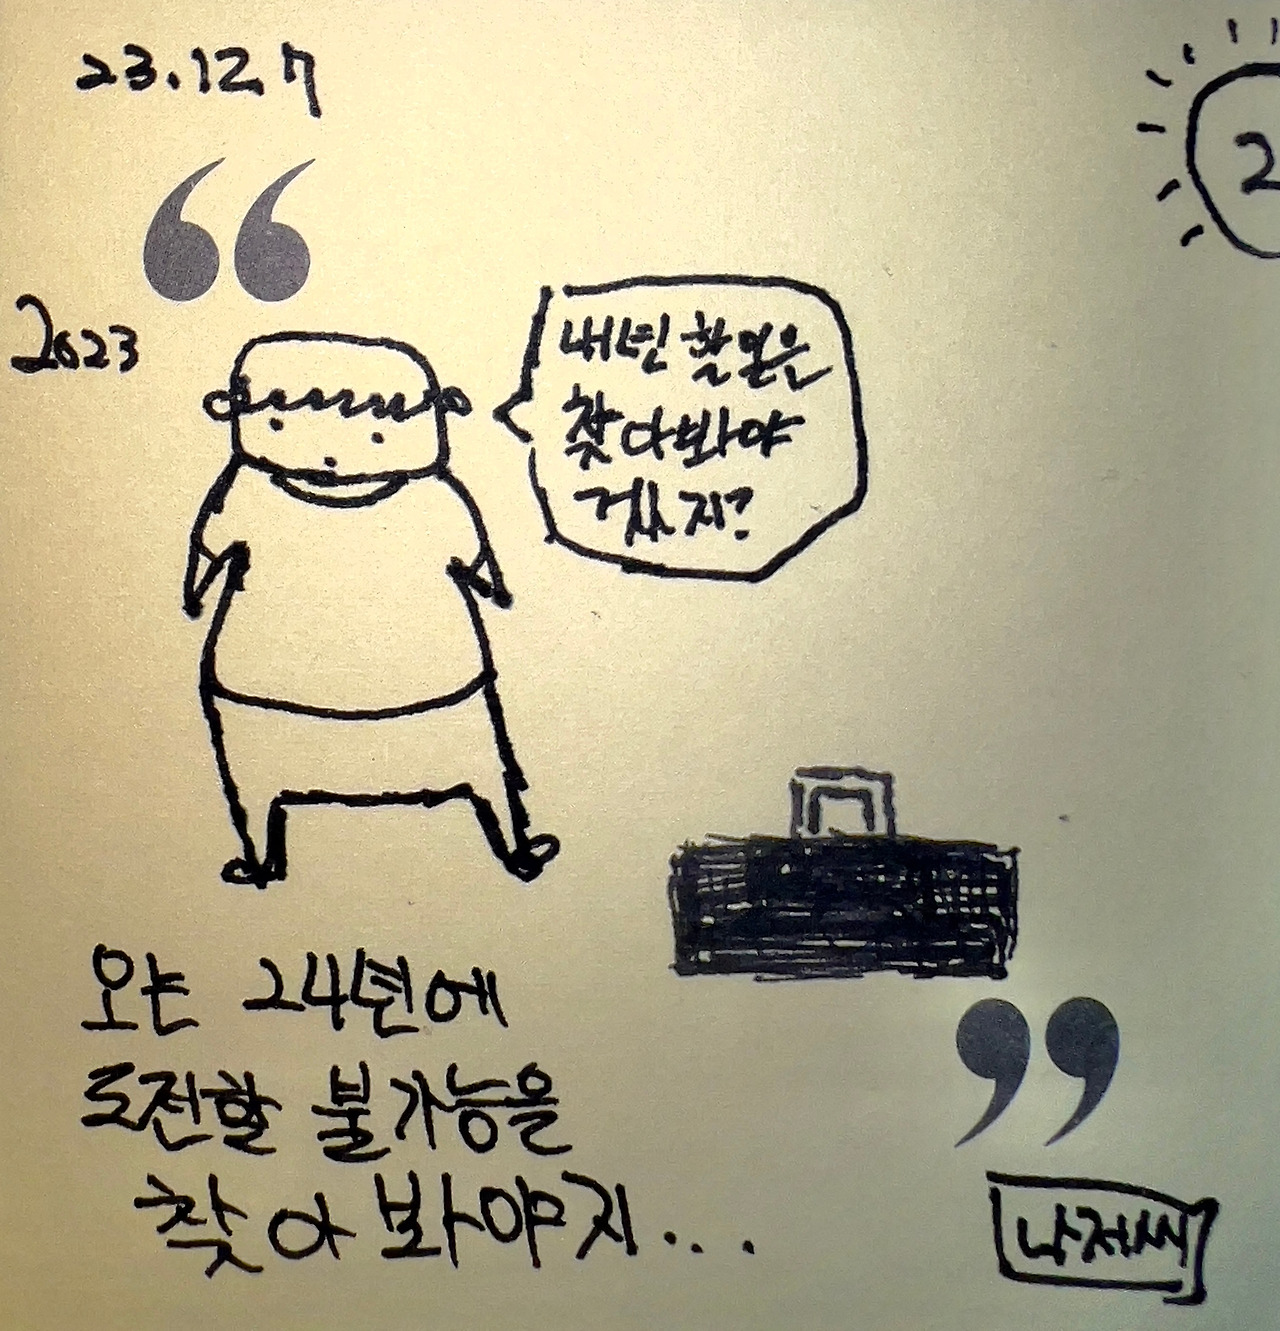 23.12.7
2
2023
내년 할일은
찾아봐야
겠지?
오는 24년에
도전할 불가능을
찾아봐야지...
나저씨